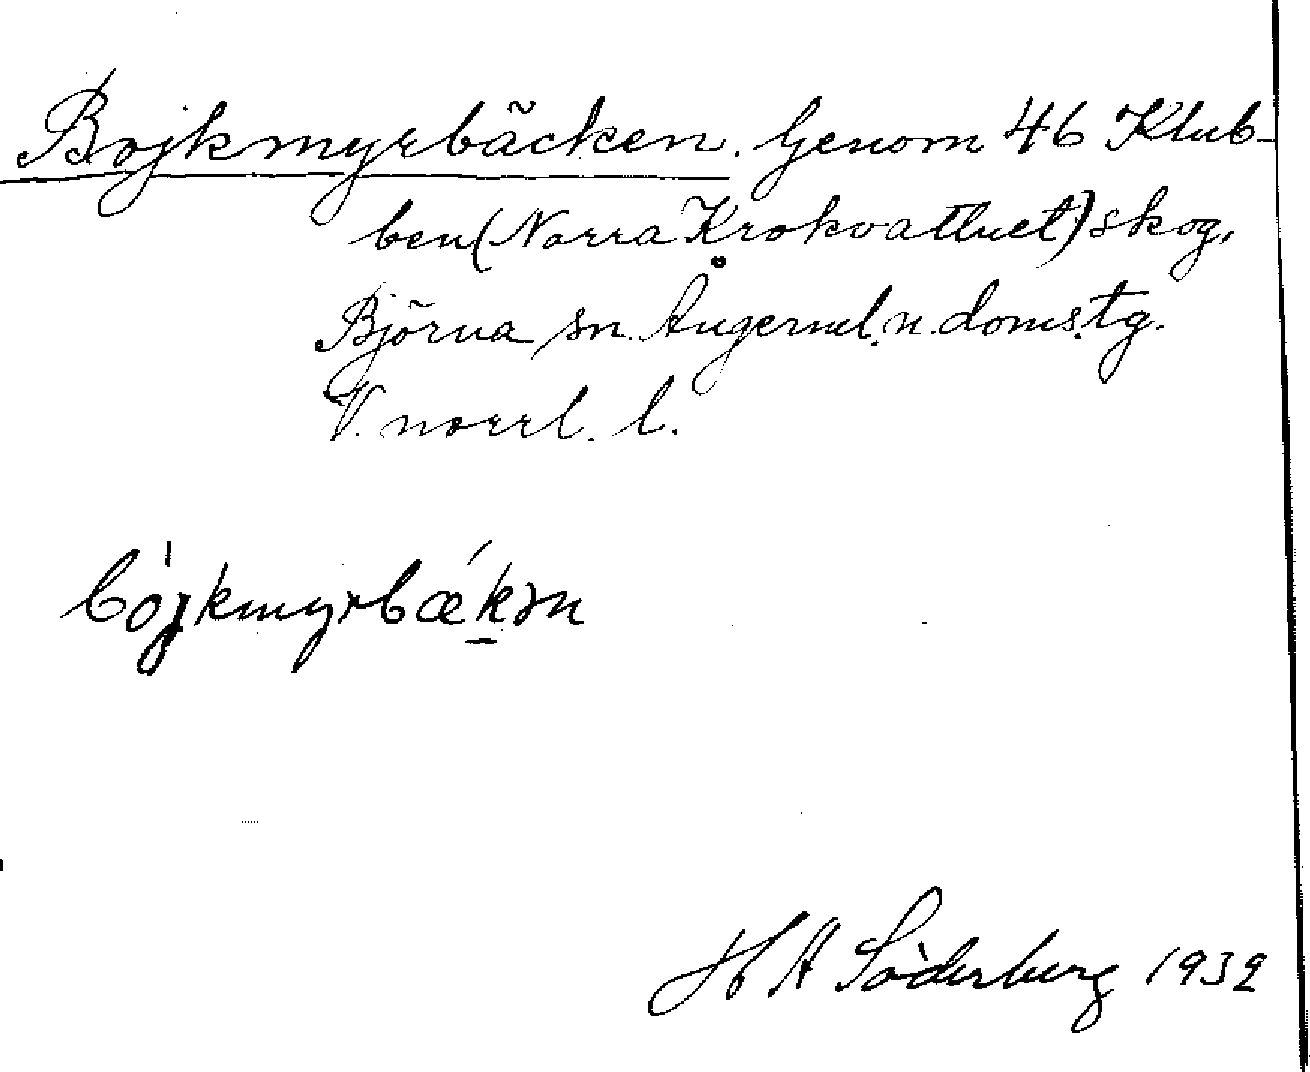 Bojkmyrbäcken. Genom 46 Klub-
ben (Norra Krokvattnet) skog,
Björna sn. Ångerml. n. doms. tg.
V. norrl. l.
bójkmyrbǽkən
H A Söderberg 1932